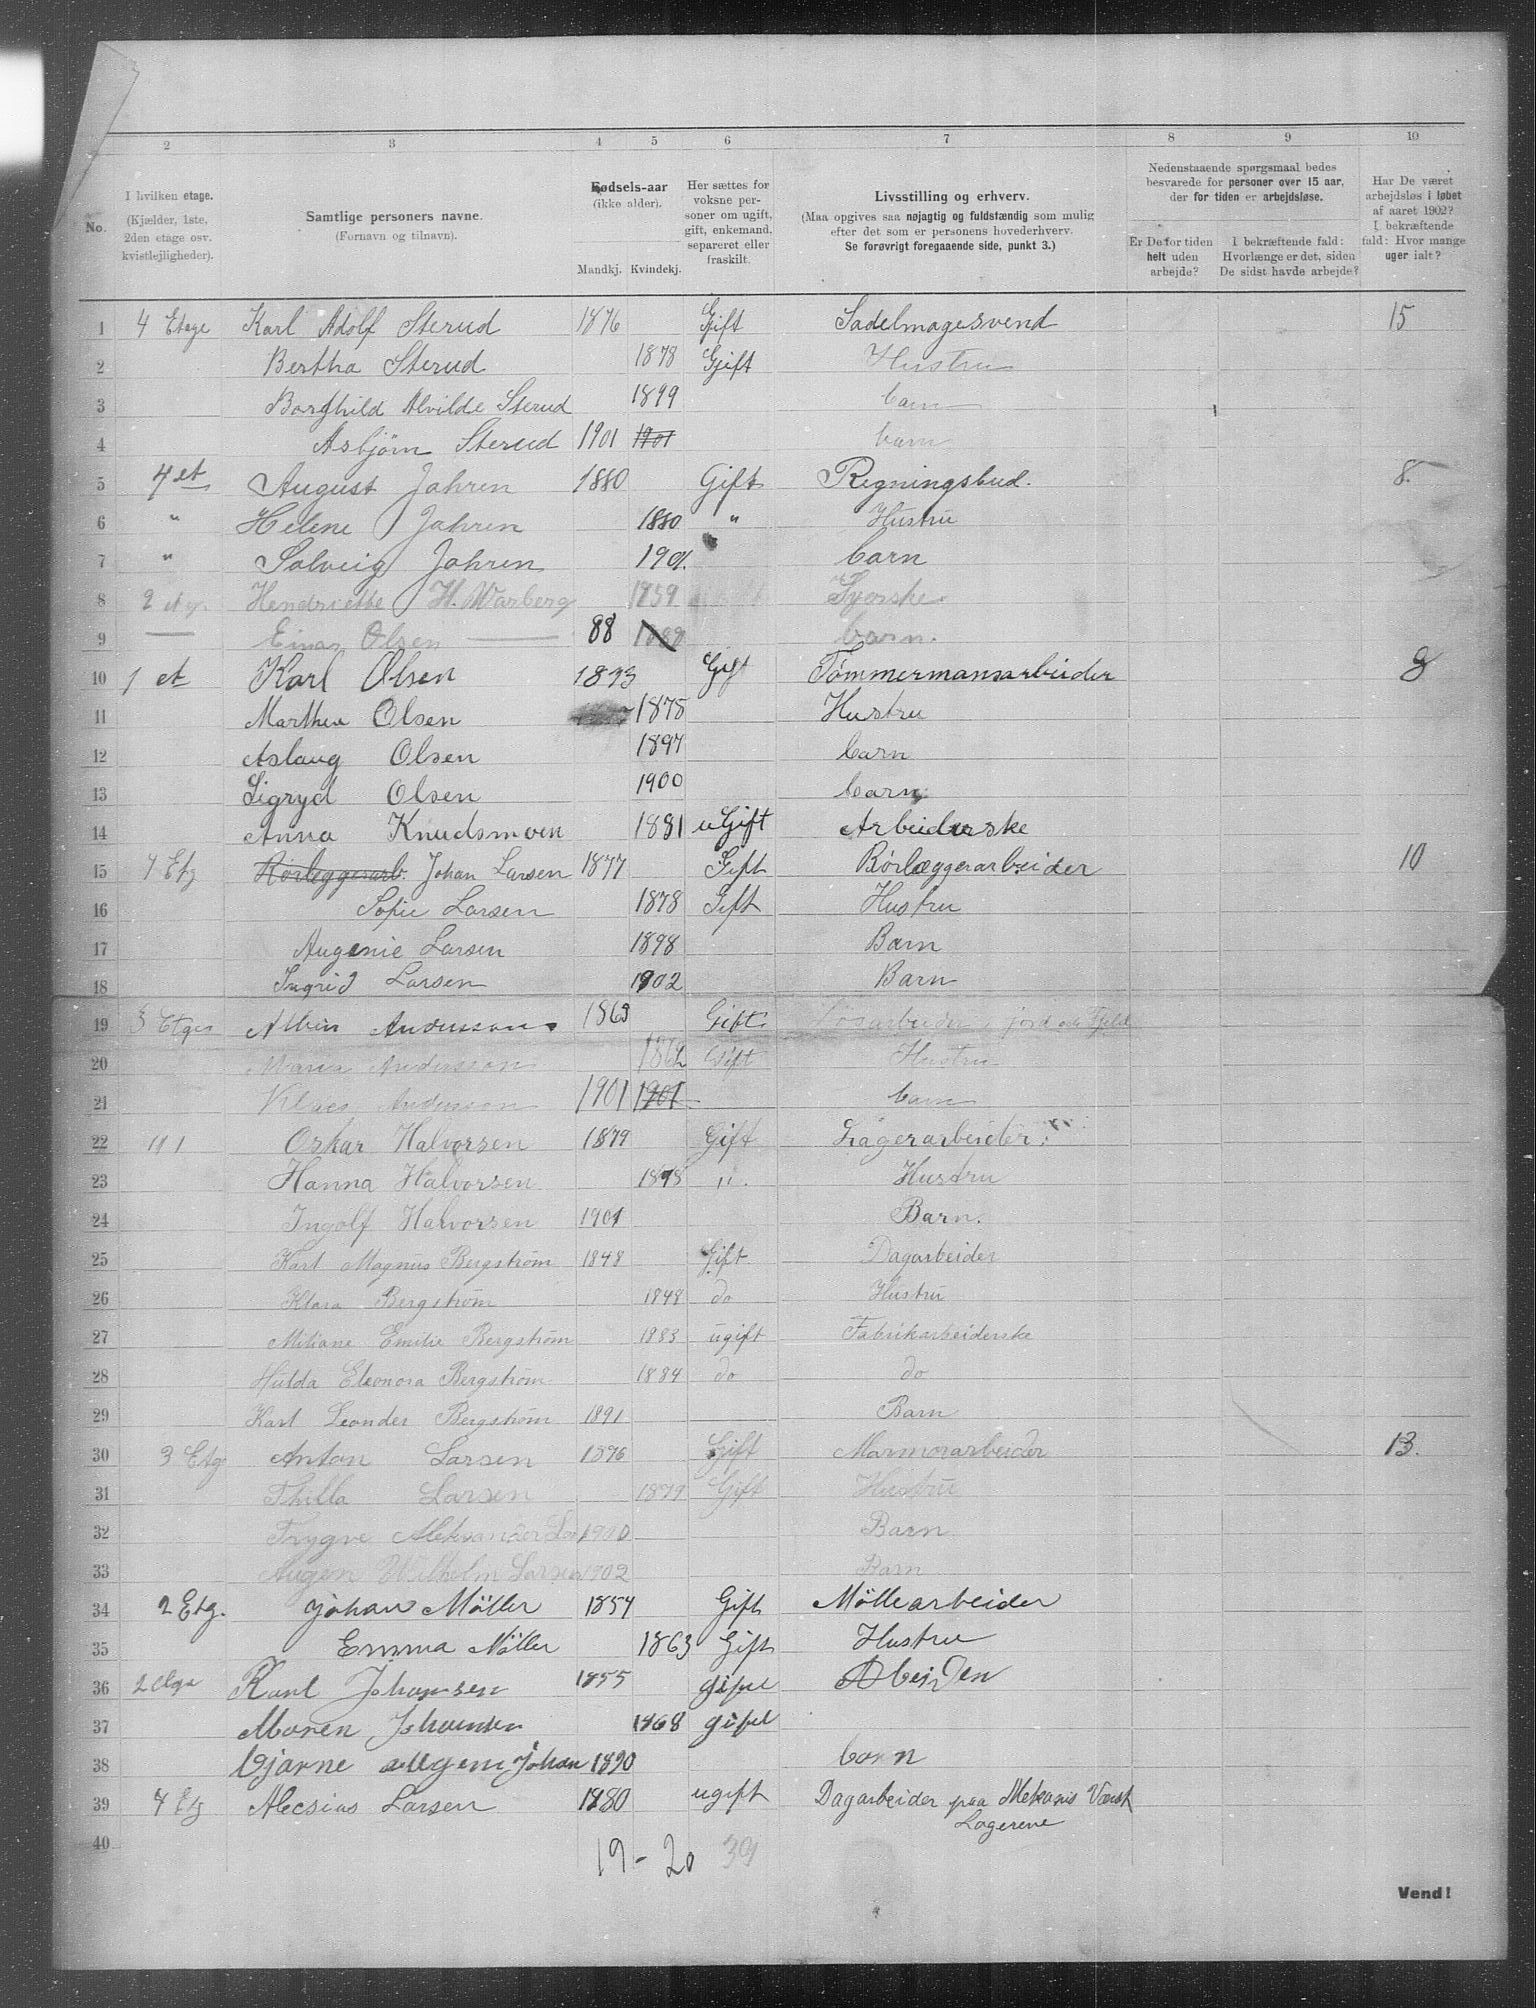 2 3 4 5 6 7 8 9 10
No.
I hvilken etage. (Kjælder, 1ste, 2den etage osv. kvistlejligheder).
Samtlige personers navne. (Fornavn og tilnavn).
Fødsels-aar (ikke alder). Mandkj. Kvindekj.
Her sættes for voksne personer om ugift, gift, enkemand, separeret eller fraskilt.
Livsstilling og erhverv. (Maa opgives saa nøjagtig og fuldstændig som mulig efter det som er personens hovederhverv. Se forøvrigt foregaaende side, punkt 3.)
Nedenstaaende spørgsmaal bedes besvarede for personer over 15 aar, der for tiden er arbejdsløse.
Er De for tiden helt uden arbejde?
I bekræftende fald: Hvorlænge er det, siden De sidst havde arbejde?
Har De været arbejdsløs i løbet af aaret 1902? I bekræftende fald: Hvor mange uger ialt?
1 4 Etage Karl Adolf Sterud 1876 Gift Sadelmagesvend 15
2 Bertha Sterud 1878 Gjift Hustru
3 Borghild Alvilde Sterud 1899 barn
4 Asbjørn Sterud 1901 1901 barn
5 4 et August Jahren 1880 Gift Regningsbud. 8.
6 " Helene Jahren 1880 " Hustru
7 " Solveig Jahren 1901. barn
8 2 etg Hendriette H. Warberg 1859 Syerske
9 Einar Olsen 88 1888 barn.
10 1 et Karl Olsen 1873 Gift Tømmermansarbeider 8
11 Marthea Olsen 1875 Hustru
12 Aslaug Olsen 1897 barn
13 Sigryd Olsen 1900 barn
14 Anna Knudsmoen 1881 uGift Arbeiderske
15 4 Etg Rørleggerarb. Johan Larsen 1877 Gift Rørlæggerarbeider 10
16 Sofie Larsen 1878 Gift Hustru
17 Augenie Larsen 1898 Barn
18 Ingrid Larsen 1902 Barn
19 3 Etges Albin Andersson 1863 Gift Løsarbeider i jord og Fjeld
20 Maria Andersson 1862 Gift Hustru
21 Klaes Andersson 1901 1901 barn
22 Oskar Halvorsen 1879 Gift Lagerarbeider
23 Hanna Halvorsen 1878 " Hustru
24 Ingolf Halvorsen 1901 Barn.
25 Karl Magnus Bergstrøm 1848 Gift Dagarbeider
26 Klara Bergstrøm 1848 do Hustru
27 Miliane Emilie Bergstrøm 1883 ugift Fabrikarbeiderske
28 Hulda Eleonora Bergstrøm 1884 do do
29 Karl Leander Bergstrøm 1891 Barn
30 3 Etg Anton Larsen 1876 Gift Marmorarbeider 13.
31 Thilla Larsen 1879 Gift Hustru
32 Trygve Aleksander Lar 1900 Barn
33 Augen Wilhelm Larsen 1902 Barn
34 2 Etg. Johan Møller 1854 Gift Møllearbeider
35 Emma Møller 1863 Gift Hustru
36 2 Etge Karl Johansen 1855 gift Abeiden
37 Maren Johansen 1868 gift
38 Bjarne Augen Johan 1890 barn
39 4 Etg Alecsias Larsen 1880 ugift Dagarbeider paa Mekanis Værst
Lagerene
40
19 - 20 39
Vend!